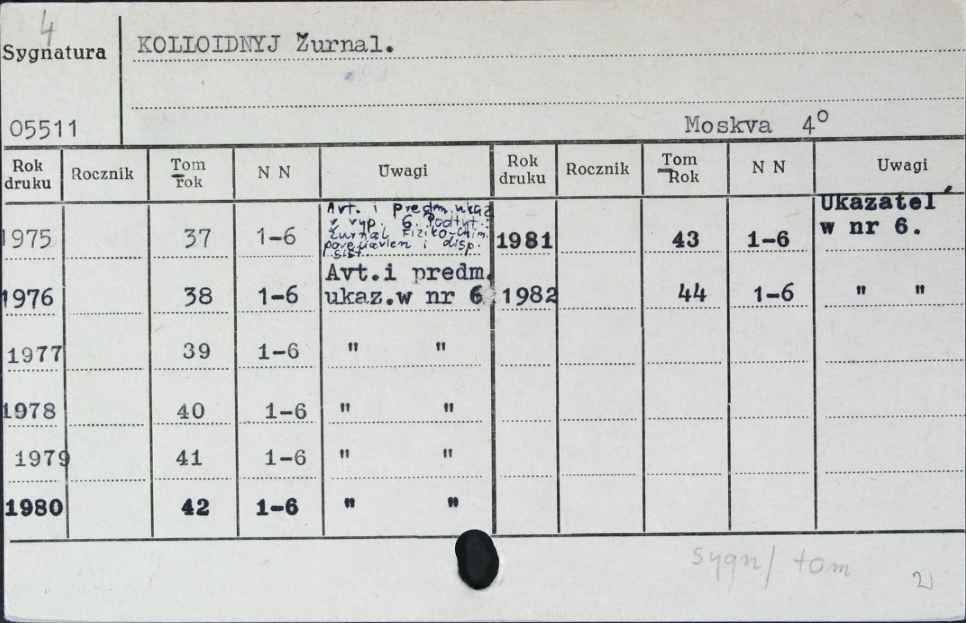 4
Sygnatura
KOLLOIDNYJ Žurnal.
05511
Moskva 4°
Rok druku Rocznik Tom rok N N Uwagi Rok druku Rocznik Tom Rok N N Uwagi
1975 37 1-6 Avt. i predm. ukaz.
v vyp. 6. Podtyt.:
Žurnal Fiziko-chim.
i disp.
sist.
1981 43 1-6 Ukazatel'
w nr 6.
1976 38 1-6 Avt.i predm.
ukaz.w nr 6.
1982 44 1-6 " "
1977 39 1-6 " "
1978 40 1-6 " "
1979 41 1-6 " "
1980 42 1-6 " "
sygn/ tom
2)